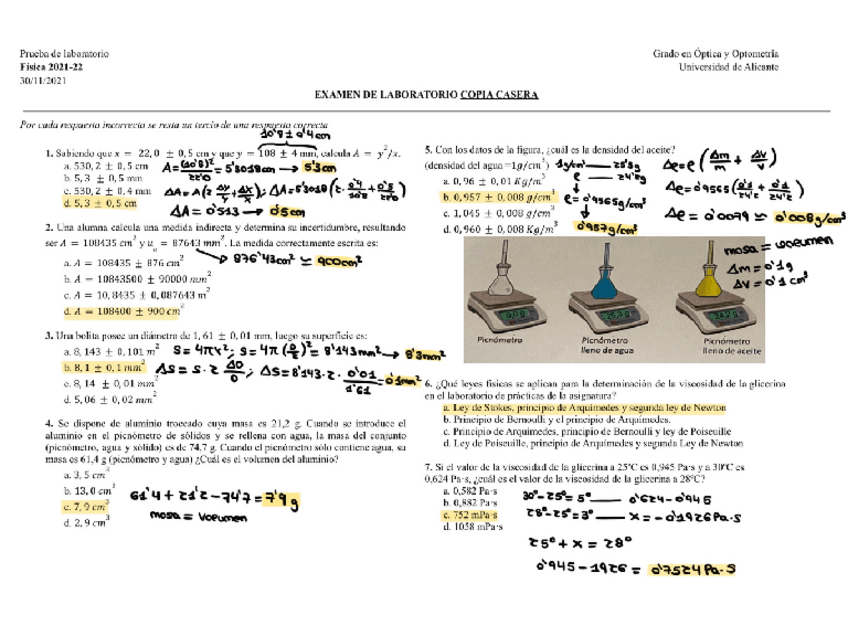 Prueba de laboratorio
Física 2021-22
30/11/2021
Grado en Óptica y Optometría
Universidad de Alicante
EXAMEN DE LABORATORIO COPIA CASERA
Por cada respuesta incorrecta se resta un tercio de una respuesta correcta
10'8 ± 0'4 cm
1. Sabiendo que x = 22,0 ± 0,5 cm y que y = 108 ± 4 mm, calcula A = y²/x.
a. 530,2 ± 0,5 cm
A = (10'8)²/22'0 = 5'3018 cm → 5'3 cm
b. 5,3 ± 0,5 mm
c. 530,2 ± 0,4 mm
ΔA = A(2 Δy/y + Δx/x); ΔA = 5'3018 (2 · 0'4/10'8 + 0'5/22'0)
d. 5,3 ± 0,5 cm
ΔA = 0'513 → 0'5 cm
2. Una alumna calcula una medida indirecta y determina su incertidumbre, resultando
ser A = 108435 cm² y u = 87643 mm². La medida correctamente escrita es:
876'43 cm² ≃ 900 cm²
a. A = 108435 ± 876 cm²
b. A = 10843500 ± 90000 mm²
c. A = 10,8435 ± 0,087643 m²
d. A = 108400 ± 900 cm²
3. Una bolita posee un diámetro de 1,61 ± 0,01 mm, luego su superficie es:
a. 8,143 ± 0,101 m²
S = 4πr²; S = 4π(D/2)² = 8'143 mm² → 8'1 mm²
b. 8,1 ± 0,1 mm²
ΔS = S · 2 ΔD/D; ΔS = 8'143 · 2 · 0'01/1'61 = 0'1 mm²
c. 8,14 ± 0,01 mm²
d. 5,06 ± 0,02 mm²
4. Se dispone de aluminio troceado cuya masa es 21,2 g. Cuando se introduce el
aluminio en el picnómetro de sólidos y se rellena con agua, la masa del conjunto
(picnómetro, agua y sólido) es de 74,7 g. Cuando el picnómetro sólo contiene agua, su
masa es 61,4 g (picnómetro y agua) ¿Cuál es el volumen del aluminio?
a. 3,5 cm³
b. 13,0 cm³
c. 7,9 cm³
d. 2,9 cm³
61'4 + 21'2 - 74'7 = 7'9 g
masa = volumen
5. Con los datos de la figura, ¿cuál es la densidad del aceite?
(densidad del agua =1g/cm³)
1 g/cm³ — 25'3 g
e — 24'2 g
a. 0,96 ± 0,01 Kg/m³
b. 0,957 ± 0,008 g/cm³
e = 0'9565 g/cm³
c. 1,045 ± 0,008 g/cm³
d. 0,960 ± 0,008 Kg/m³
0'957 g/cm³
Δe = e (Δm/m + Δv/v)
Δe = 0'9565 (0'1/24'2 + 0'1/24'2)
Δe = 0'0079 ≃ 0'008 g/cm³
masa = volumen
Δm = 0'1 g
ΔV = 0'1 cm³
0,0 g
25,3 g
24,2 g
Picnómetro
Picnómetro
lleno de agua
Picnómetro
lleno de aceite
6. ¿Qué leyes físicas se aplican para la determinación de la viscosidad de la glicerina
en el laboratorio de prácticas de la asignatura?
a. Ley de Stokes, principio de Arquímedes y segunda ley de Newton
b. Principio de Bernoulli y el principio de Arquímedes.
c. Principio de Arquímedes, principio de Bernoulli y ley de Poiseuille
d. Ley de Poiseuille, principio de Arquímedes y segunda Ley de Newton
7. Si el valor de la viscosidad de la glicerina a 25ºC es 0,945 Pa·s y a 30ºC es
0,624 Pa·s, ¿cuál es el valor de la viscosidad de la glicerina a 28ºC?
a. 0,582 Pa·s
b. 0,882 Pa·s
c. 752 mPa·s
d. 1058 mPa·s
30º - 25º = 5º — 0'624 - 0'945
28º - 25º = 3º — x = - 0'1926 Pa·s
25º + x = 28º
0'945 - 1926 = 0'7524 Pa·s